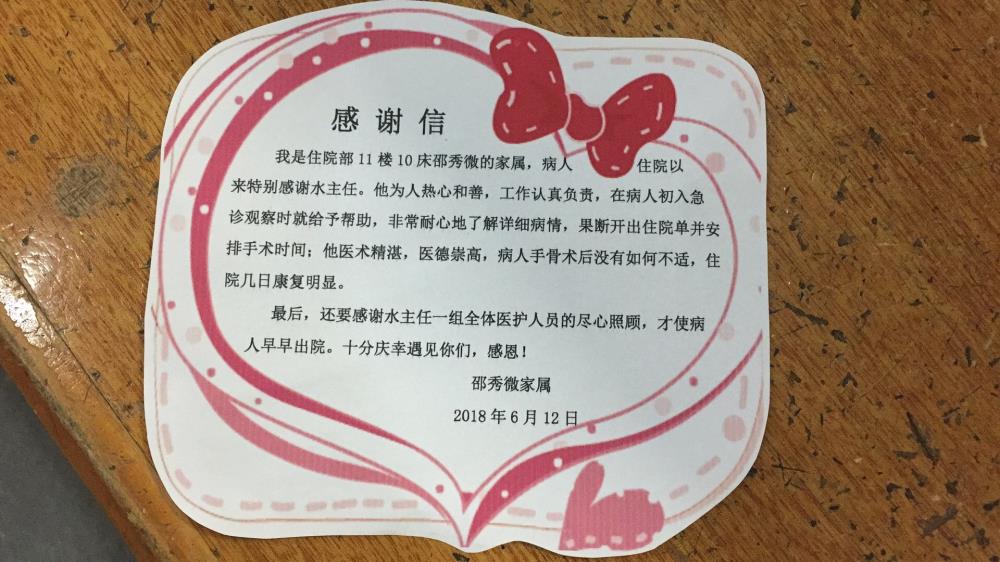 感谢信
我是住院部11楼10床邵秀微的家属，病人 住院以
来特别感谢水主任。他为人热心和善，工作认真负责，在病人初入急
诊观察时就给予帮助，非常耐心地了解详细病情，果断开出住院单并安
排手术时间；他医术精湛，医德崇高，病人手骨术后没有如何不适，住
院几日康复明显。
最后，还要感谢水主任一组全体医护人员的尽心照顾，才使病
人早早出院。十分庆幸遇见你们，感恩！
邵秀微家属
2018年6月12日